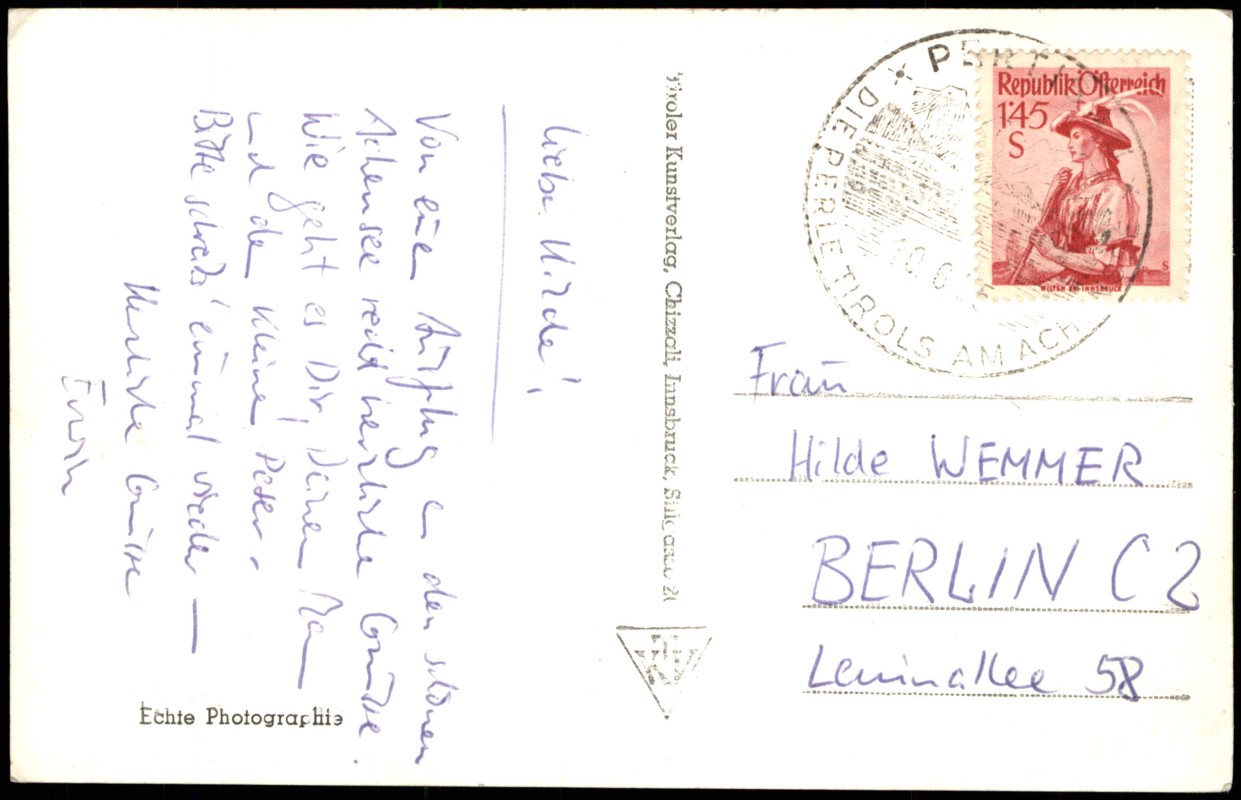 Liebe Hilde!
Von einem Ausflug an den schönen
Achensee recht herzliche Grüsse.
Wie geht es Dir, Deinem Mann
und dem kleinen Peter.
Bitte schreib' einmal wieder —
Herzliche Grüsse
Erwin
Echte Photographie
Tiroler Kunstverlag, Chizzali, Innsbruck,
PERTI
DIE PERLE TIROLS AM ACH
10.6.
Republik Österreich
1'45
S
WILTEN BEI INNSBRUCK
Frau
Hilde WEMMER
BERLIN C2
Leninallee 58